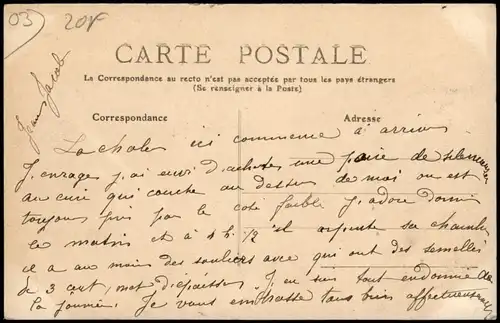 03
20F
CARTE POSTALE
La Correspondance au recto n'est pas acceptée par tous les pays étrangers
(Se renseigner à la Poste)
Jean Jacob
Correspondance
Adresse
La chaleur ici commence à arriver
J'enrage, j'ai envi d'acheter une paire de
au curé qui couche au dessus de moi on est
toujours pris par le coté faible J'adore dormir
le matin et à 4 h. 1/2 il arpente sa chambre
il a au moin des souliers avec qui ont des semelles
de 3 cent. met d'épaisseur J'en suis tout endormie de
la journée. Je vous embrasse tous bien affectueusement